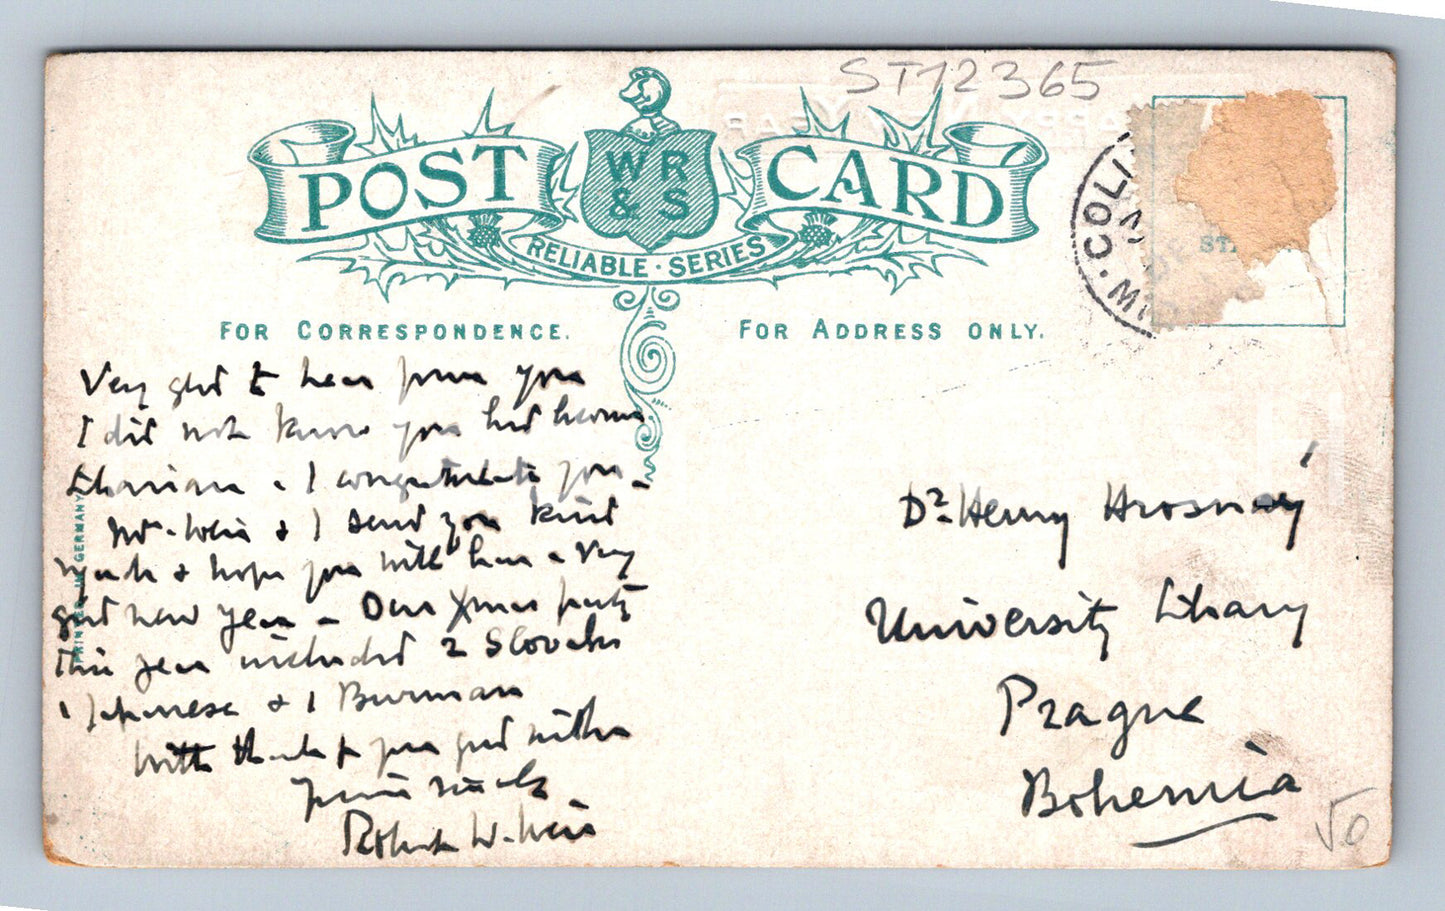 ST12365
HAPPY NEW YEAR
POST CARD
WR
& S
RELIABLE · SERIES
W. COLI
FOR CORRESPONDENCE.
FOR ADDRESS ONLY.
PRINTED IN GERMANY
Very glad to hear from you
I did not know you had become
Librarian - I congratulate you -
& I send you kind
& hope you will have a very
glad new year - Our Xmas party
This year included 2 Slovaks
1 Japanese & 1 Burman
With thanks for your good wishes
Yours
Robert W.
Dr. Henry Hrosnáý
University Library
Prague
Bohemia
50